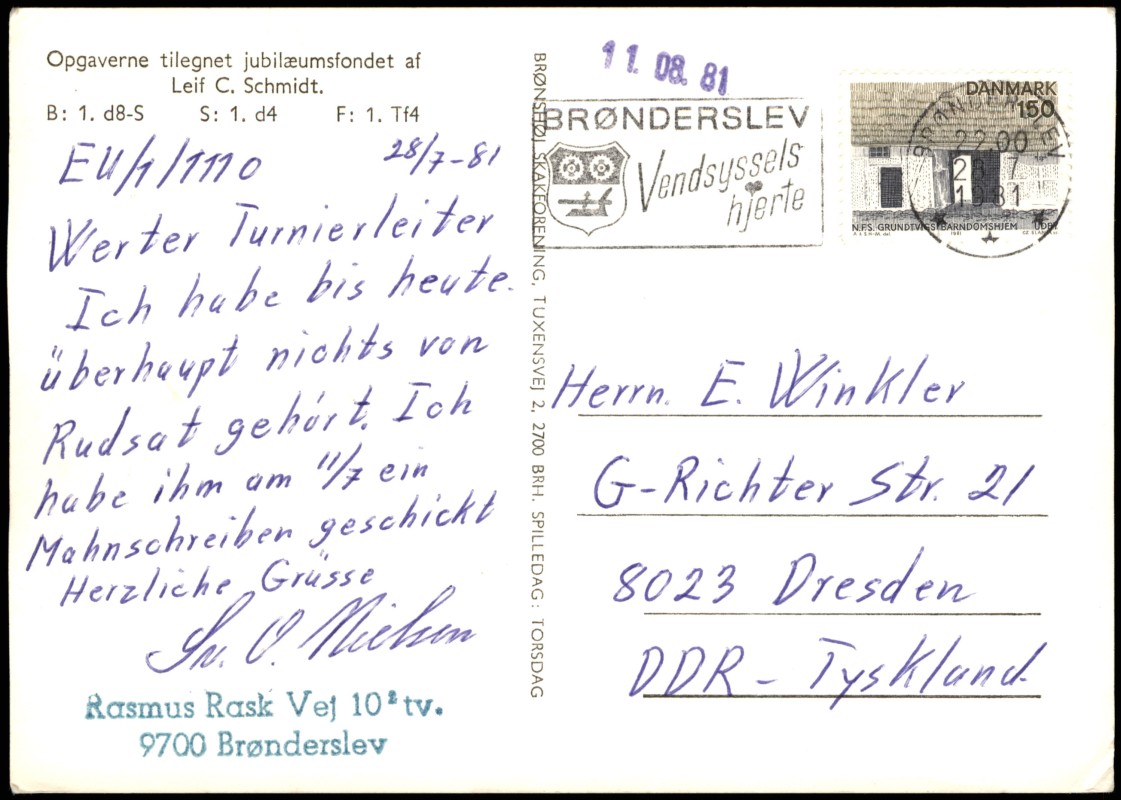 Opgaverne tilegnet jubilæumsfondet af
Leif C. Schmidt.
B: 1. d8-S S: 1. d4 F: 1. Tf4
EU/1/1110 28/7-81
Werter Turnierleiter
Ich habe bis heute.
überhaupt nichts von
Rudsat gehört. Ich
habe ihm am 11/7 ein
Mahnschreiben geschickt
Herzliche Grüsse
Sv. O. Nielsen
Rasmus Rask Vej 10² tv.
9700 Brønderslev
BRØNSHØJ SKAKFORENING, TUXENSVEJ 2, 2700 BRH. SPILLEDAG: TORSDAG
11. 08. 81
BRØNDERSLEV
Vendsyssels
hjerte
DANMARK
150
N.F.S. GRUNDTVIGS BARNDOMSHJEM UDBY
1981
BRØNDERSLEV
22.00
28 7
1981
Herrn. E. Winkler
G-Richter Str. 21
8023 Dresden
DDR - Tyskland.